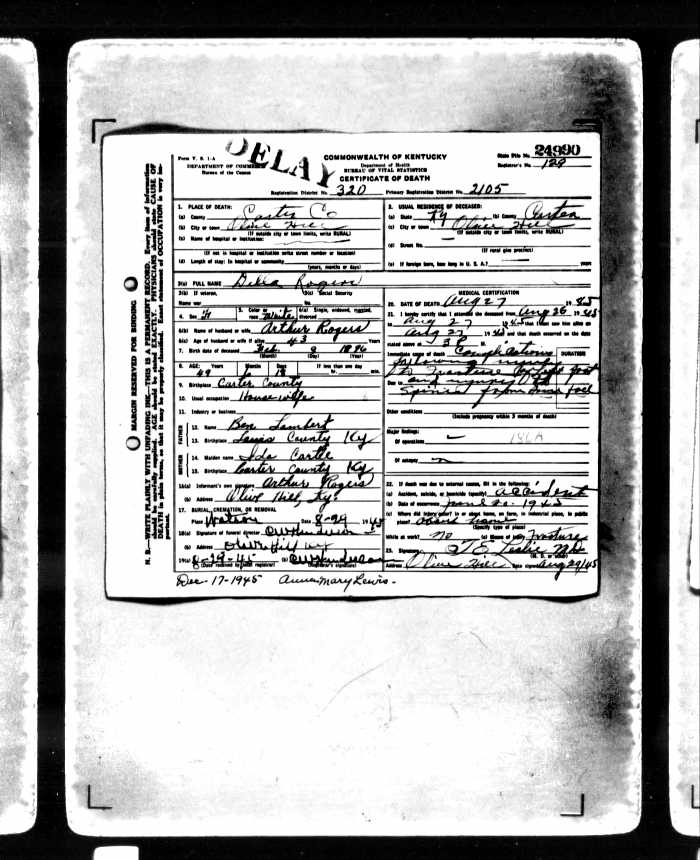 DELAY
Form V. S. 1-A
DEPARTMENT OF COMMERCE
Bureau of the Census
COMMONWEALTH OF KENTUCKY
Department of Health
BUREAU OF VITAL STATISTICS
CERTIFICATE OF DEATH
State File No. 24990
Registrar's No. 129
Registration District No. 320
Primary Registration District No. 2105
MARGIN RESERVED FOR BINDING
1. PLACE OF DEATH:
(a) County Carter Co
(b) City or town Olive Hill
(If outside city or town limits, write RURAL)
(c) Name of hospital or institution:
(If not in hospital or institution write street number or location)
(d) Length of stay: In hospital or community
(years, months or days)
2. USUAL RESIDENCE OF DECEASED:
(a) State Ky (b) County Carter
(c) City or town Olive Hill
(If outside city or town limits, write RURAL)
(d) Street No.
(If rural give precinct)
(e) If foreign born, how long in U. S. A.? years
3(a) FULL NAME Della Rogers
3(b) If veteran, Name war
3(c) Social Security No.
4. Sex
5. Color or race White
6(a) Single, widowed, married, divorced
6(b) Name of husband or wife Arthur Rogers
6(c) Age of husband or wife if alive 43 Years
7. Birth date of deceased Feb. 9 1896
(Month) (Day) (Year)
8. AGE: Years 49 Months 6 Days 18 If less than one day hr. min.
9. Birthplace Carter County
10. Usual occupation House wife
11. Industry or business
FATHER
12. Name Ben Lambert
13. Birthplace Lewis County Ky
MOTHER
14. Maiden name Ida Cartee
15. Birthplace Carter County Ky
16(a) Informant's own signature Arthur Rogers
(b) Address Olive Hill, Ky.
17. BURIAL, CREMATION, OR REMOVAL
Place Watson Date 8-29 1945
18(a) Signature of funeral director C W Henderson
(b) Address Olive Hill Ky
19(a) 8-29-45 (b) C W Henderson
(Date received by local registrar) (Registrar's signature)
MEDICAL CERTIFICATION
20. DATE OF DEATH Aug 27 1945
21. I hereby certify that I attended the deceased from Aug 26 1945
to Aug 27 1945 that I last saw him alive on
Aug 27 1945 and that death occurred on the date
stated above at 3 P. M.
Immediate cause of death Complications DURATION
following injury
Due to
Other conditions
(Include pregnancy within 3 months of death)
Major findings:
Of operations 186A
Of autopsy
22. If death was due to external causes, fill in the following:
(a) Accident, suicide, or homicide (specify) accident
(b) Date of occurrence
(c) Where did injury occur? In or about home, on farm, in industrial place, in public
place? about home
(Specify type of place)
While at work? no (e) Means of injury Fracture
23. Signature J E Leslie MD
(M. D. or other)
Address Olive Hill Date signed Aug 29/45
Dec-17-1945 Anna Mary Lewis.